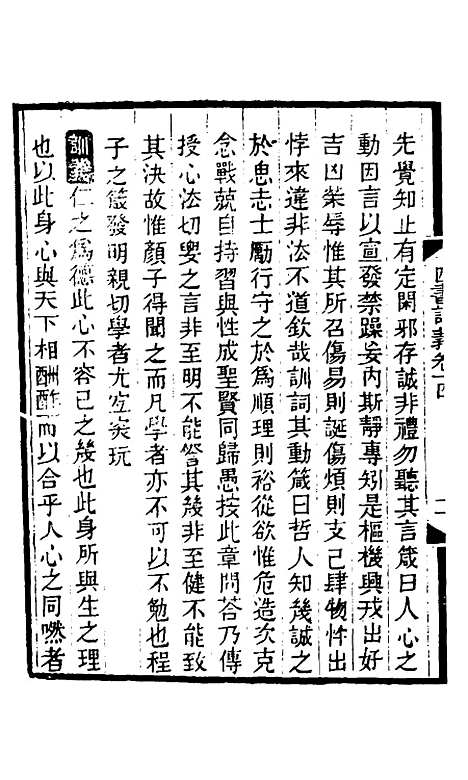 先覺知止有定閑邪存誠非禮勿聽其言箴曰人心之
動因言以宣發禁躁妄内斯靜專矧是樞機興戎出好
吉凶榮辱惟其所召傷易則誕傷煩則支己肆物忤出
悖來違非法不道欽哉訓詞其動箴曰哲人知幾誠之
於思志士勵行守之於為順理則裕從欲惟危造次克
念戰兢自持習與性成聖賢同歸愚按此章問荅乃傳
授心法切要之言非至明不能詧其幾非至健不能致
其決故惟顏子得聞之而凡學者亦不可以不勉也程
子之箴發明親切學者尤宜㳬玩
訓義仁之爲德此心不容已之幾也此身所與生之理
也以此身心與天下相酬酢而以合乎人心之同嘫者
四書訓義卷十四